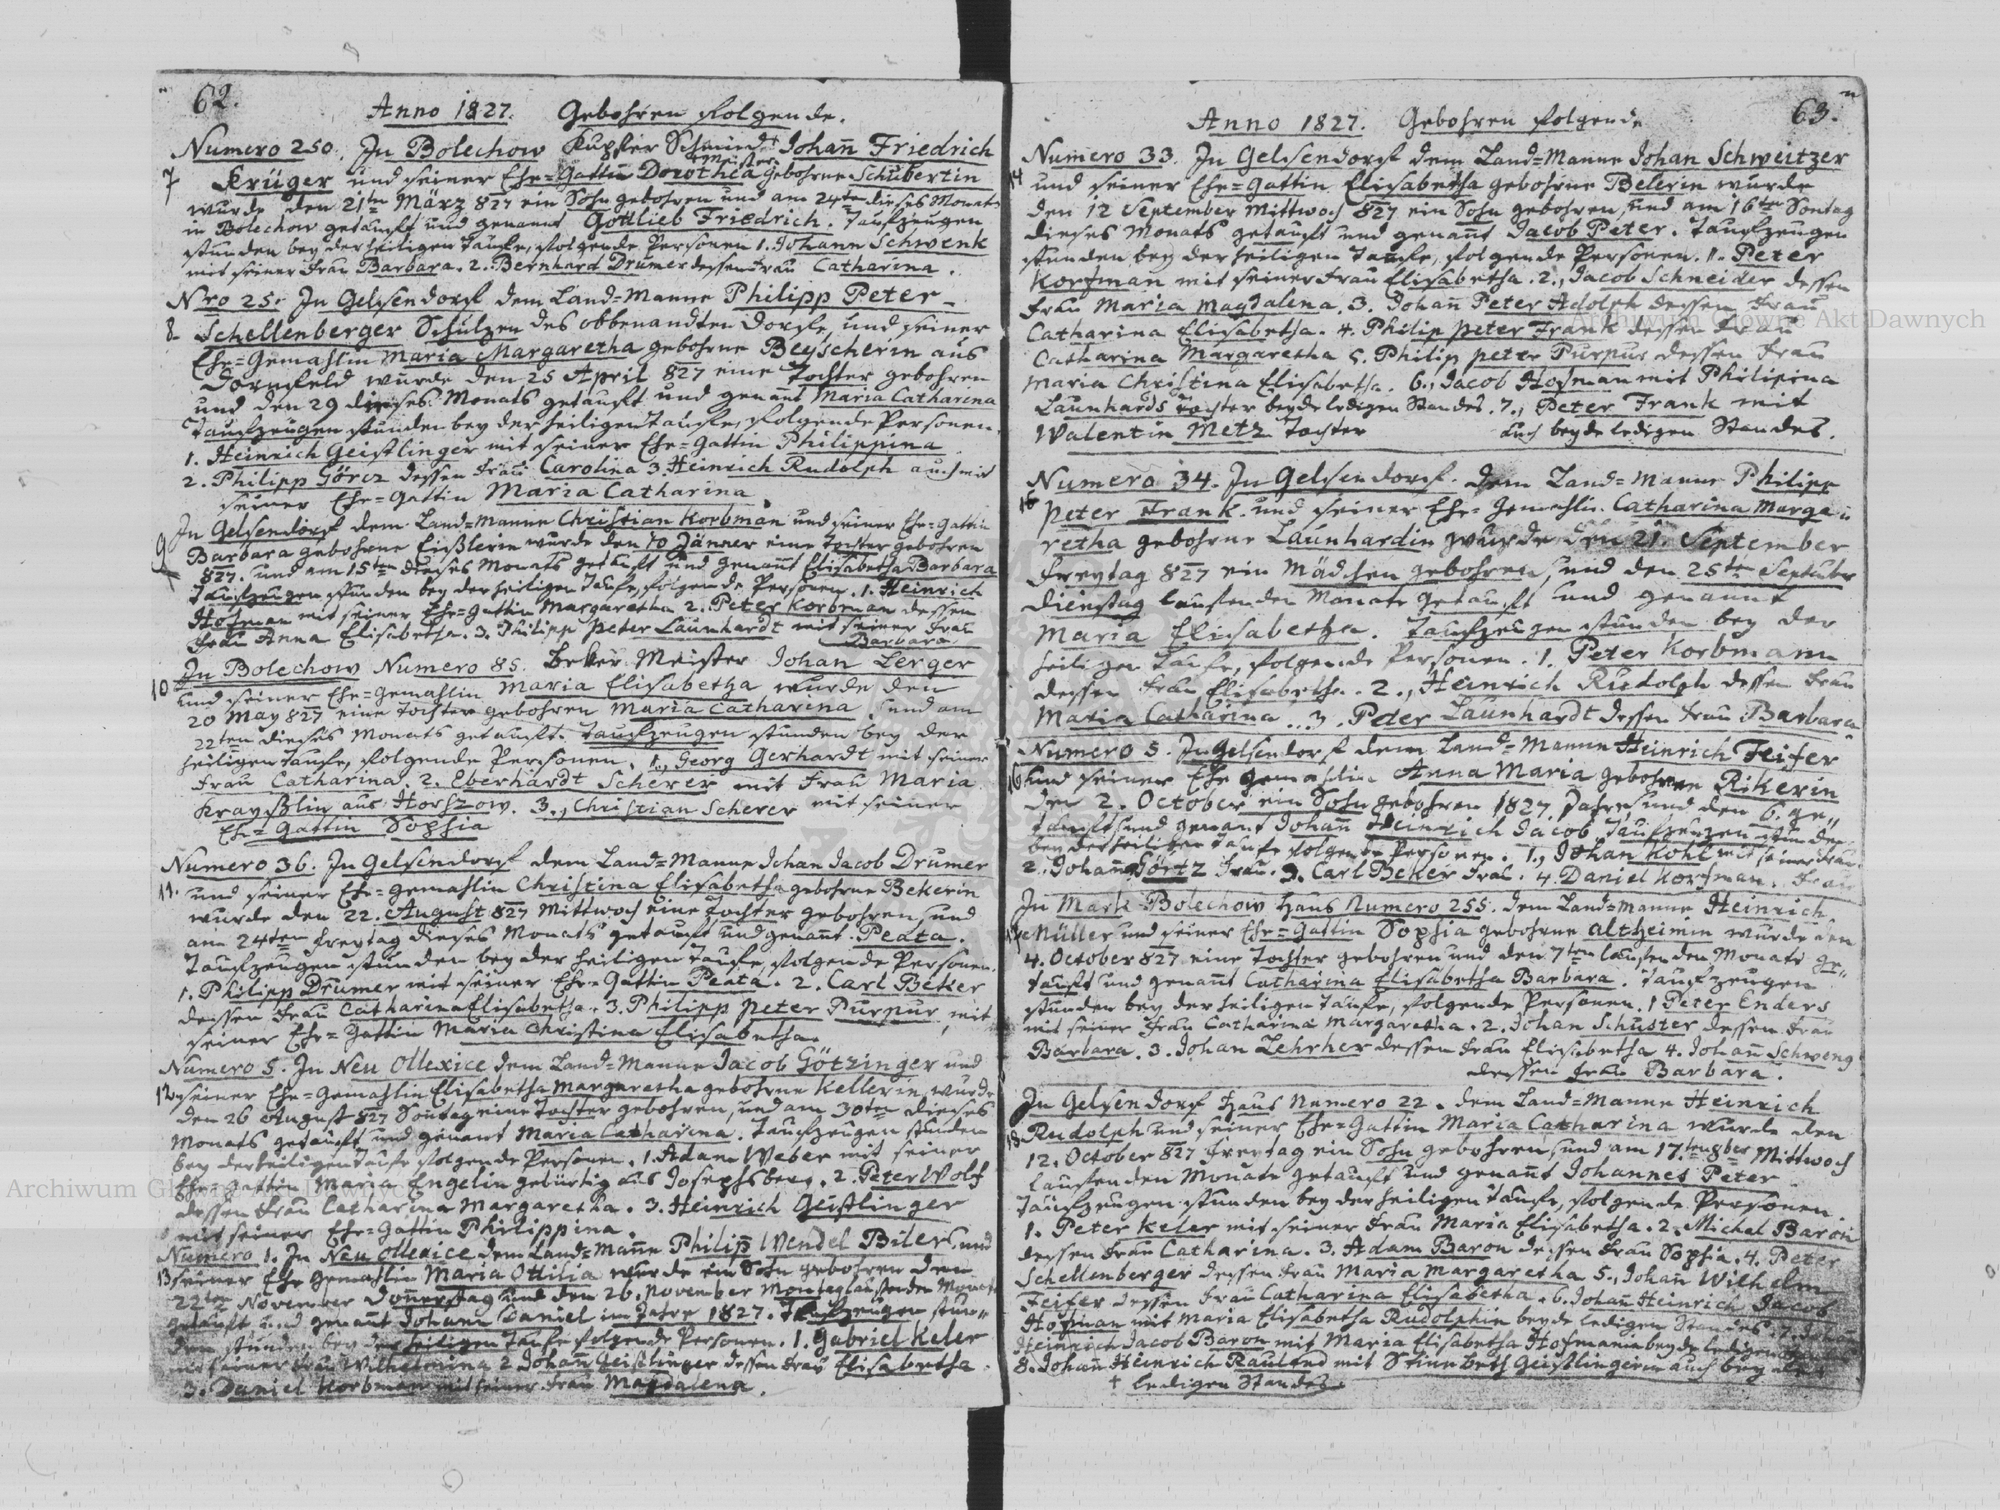 62.
Anno 1827. Gebohren folgende.
Numero 250. In Bolechow Kupfer Schmiedt Johann Friedrich
Meister
7 Krüger und seiner Ehe=Gattin Dorothea gebohrne Schubertin
wurde den 21ten März 827 ein Sohn gebohren und am 24ten dieses Monats
in Bolechow getauft und genannt Gottlieb Friedrich. Taufzeugen
stunden bey der heiligen Taufe, folgende Personen 1. Johann Schwenk
mit seiner Frau Barbara. 2. Bernhard Drumer dessen Frau Catharina.
Nro 25. In Gelsendorf dem Land=Manne Philipp Peter
8 Schellenberger Schulzen des obbenandten Dorfe, und seiner
Ehe=Gemahlin Maria Margaretha gebohrne Beyscherin aus
Dornfeld wurde den 25 April 827 eine Tochter gebohren
und den 29 dieses Monats getauft und genant Maria Catharina
Taufzeugen stunden bey der heiligen Taufe, folgende Personen.
1. Heinrich Geistlinger mit seiner Ehe=Gattin Philippina
2. Philipp Görcz dessen Frau Carolina 3. Heinrich Rudolph auch mit
seiner Ehe=Gattin Maria Catharina.
In Gelsendorf dem Land=Manne Christian Korbman und seiner Ehe=Gattin
9 Barbara gebohrne Eißlerin wurde den 10 Jänner eine Tochter gebohren
827. und am 15ten dieses Monats getauft und genant Elisabetha Barbara
Taufzeugen stunden bey der heiligen Taufe, folgende Personen. 1. Heinrich
Hofman mit seiner Ehe=Gattin Margaretha 2. Peter Korbman dessen
Frau Anna Elisabetha. 3. Philipp Peter Launhardt mit seiner Frau
Barbara
In Bolechow Numero 85. Beker Meister Johan Lerger
10 und seiner Ehe=Gemahlin Maria Elisabetha wurde den
20 May 827 eine Tochter gebohren Maria Catharina, und am
22ten dieses Monats getauft. Taufzeugen stunden bey der
heiligen Taufe, folgende Personen. 1., Georg Gerhardt mit seiner
Frau Catharina. 2. Eberhardt Scherer mit Frau Maria
Krayßlin aus Horszow. 3., Christian Scherer mit seiner
Eh=Gattin Sophia
Numero 36. In Gelsendorf dem Land=Manne Johan Jacob Drumer
11. und seiner Ehe=Gemahlin Christina Elisabetha gebohrne Bekerin
wurde den 22. August 827 Mittwoch eine Tochter gebohren, und
am 24ten Freytag dieses Monats getauft und genannt. Peata.
Taufzeugen stunden bey der heiligen Taufe, folgende Personen.
1. Philipp Drumer mit seiner Ehe=Gattin Peata. 2. Carl Beker
dessen Frau Catharina Elisabetha. 3. Philipp Peter Purpur mit
seiner Ehe=Gattin Maria Christina Elisabetha.
Numero 5. In Neu Ollexice dem Land=Manne Jacob Götzinger und
12 seiner Ehe=Gemahlin Elisabetha Margaretha gebohrne Kellerin, wurde
den 26 August 827 Sontag eine Tochter gebohren, und am 30ten dieses
Monats getauft und genant Maria Catharina. Taufzeugen stunden
bey der heiligen Taufe folgende Personen. 1. Adam Weber mit seiner
Ehe=Gattin Maria Engelin gebürtig aus Josephsberg. 2. Peter Wolf
dessen Frau Catharina Margaretha. 3. Heinrich Geistlinger
mit seiner Ehe=Gattin Philippina.
Numero 1. In Neu Ollexice dem Land=Manne Philip Wendel Biler, und
13 seiner Ehe Gemahlin Maria Ottilia wurde ein Sohn gebohren den
22ten November Donnerstag und den 26. November Montag laufenden Monats
getauft und genant Johann Daniel im Jahre 1827. Taufzeugen
stunden bey der heiligen Taufe folgende Personen. 1. Gabriel Keler
mit seiner Frau Wilhelmina 2 Johann Geistlinger dessen Frau Elisabetha.
3. Daniel Korbman mit seiner Frau Magdalena.
63.
Anno 1827. Gebohren folgende
Numero 33. In Gelsendorf dem Land=Manne Johan Schweitzer
14 und seiner Ehe=Gattin Elisabetha gebohrne Belerin wurde
den 12 September Mittwoch 827 ein Sohn gebohren, und am 16ten Sontag
dieses Monats getauft und genannt Jacob Peter. Taufzeugen
stunden bey der heiligen Taufe, folgende Personen. 1. Peter
Korfman mit seiner Frau Elisabetha. 2., Jacob Schneider dessen
Frau Maria Magdalena. 3. Johan Peter Adolph dessen Frau
Catharina Elisabetha. 4. Philip Peter Frank dessen Frau
Catharina Margaretha 5. Philip Peter Purpur dessen Frau
Maria Christina Elisabetha. 6., Jacob Hofman mit Philipina
Launhards Tochter beyde ledigen Standes. 7., Peter Frank mit
Walentin Metz Tochter auch beyde ledigen Standes.
Numero 34. In Gelsendorf. dem Land=Manne Philipp
15 Peter Frank. und seiner Ehe=Gemahlin. Catharina Marga=
retha gebohrne Launhardin wurde den 21. September
Freytag 827 ein Mädchen gebohren, und den 25ten September
Dienstag laufenden Monats getauft und genannt
Maria Elisabetha. Taufzeugen stunden bey der
heiligen Taufe, folgende Personen. 1. Peter Korbmann
dessen Frau Elisabetha. 2., Heinrich Rudolph dessen Frau
Maria Catharina. 3. Peter Launhardt dessen Frau Barbara
Numero 5. In Gelsendorf dem Land=Manne Heinrich Feifer
16 und seiner Ehe Gemahlin Anna Maria gebohren Rikerin
den 2. October ein Sohn gebohren 1827. Jahre, und den 6. ge=
tauft und genant Johann Heinrich Jacob. Taufzeugen stunden
bey der heiligen Taufe folgende Personen. 1., Johan Kohl mit seiner Frau
2. Johann Görtz Frau. 3. Carl Beker Frau. 4. Daniel Korfman. Frau
In Mark=Bolechow Haus Numero 255. dem Land=Manne Heinrich
17 Müller und seiner Ehe=Gattin Sophia gebohrne Altheimin wurde den
4. October 827 eine Tochter gebohren und den 7ten laufenden Monats ge=
tauft und genant Catharina Elisabetha Barbara. Taufzeugen
stunden bey der heiligen Taufe, folgende Personen. 1 Peter Enders
mit seiner Frau Catharina Margaretha. 2. Johan Schuster dessen Frau
Barbara. 3. Johan Lehrher dessen Frau Elisabetha 4. Johann Schweng
dessen Frau Barbara.
In Gelsendorf Haus Numero 22. dem Land=Manne Heinrich
18 Rudolph und seiner Ehe=Gattin Maria Catharina wurde den
12. October 827 Freytag ein Sohn gebohren, und am 17.ten 8ber Mittwoch
laufenden Monats getauft und genannt Johannes Peter
Taufzeugen stunden bey der heiligen Taufe, folgende Personen
1. Peter Keler mit seiner Frau Maria Elisabetha. 2. Michel Baron
dessen Frau Catharina. 3. Adam Baron dessen Frau Sophia. 4. Peter
Schellenberger dessen Frau Maria Margaretha 5., Johan Wilhelm
Feifer dessen Frau Catharina Elisabetha. 6. Johan Heinrich Jacob
Hofman mit Maria Elisabetha Rudolphin beyde ledigen Standes. 7. Johan
Heinrich Jacob Baron mit Maria Elisabetha Hofmanin beyde ledigen
8. Johan Heinrich Raulfed mit Stinebeth Geistlingerin auch beyde
† ledigen Standes
Archiwum Główne Akt Dawnych
Archiwum Główne Akt Dawnych